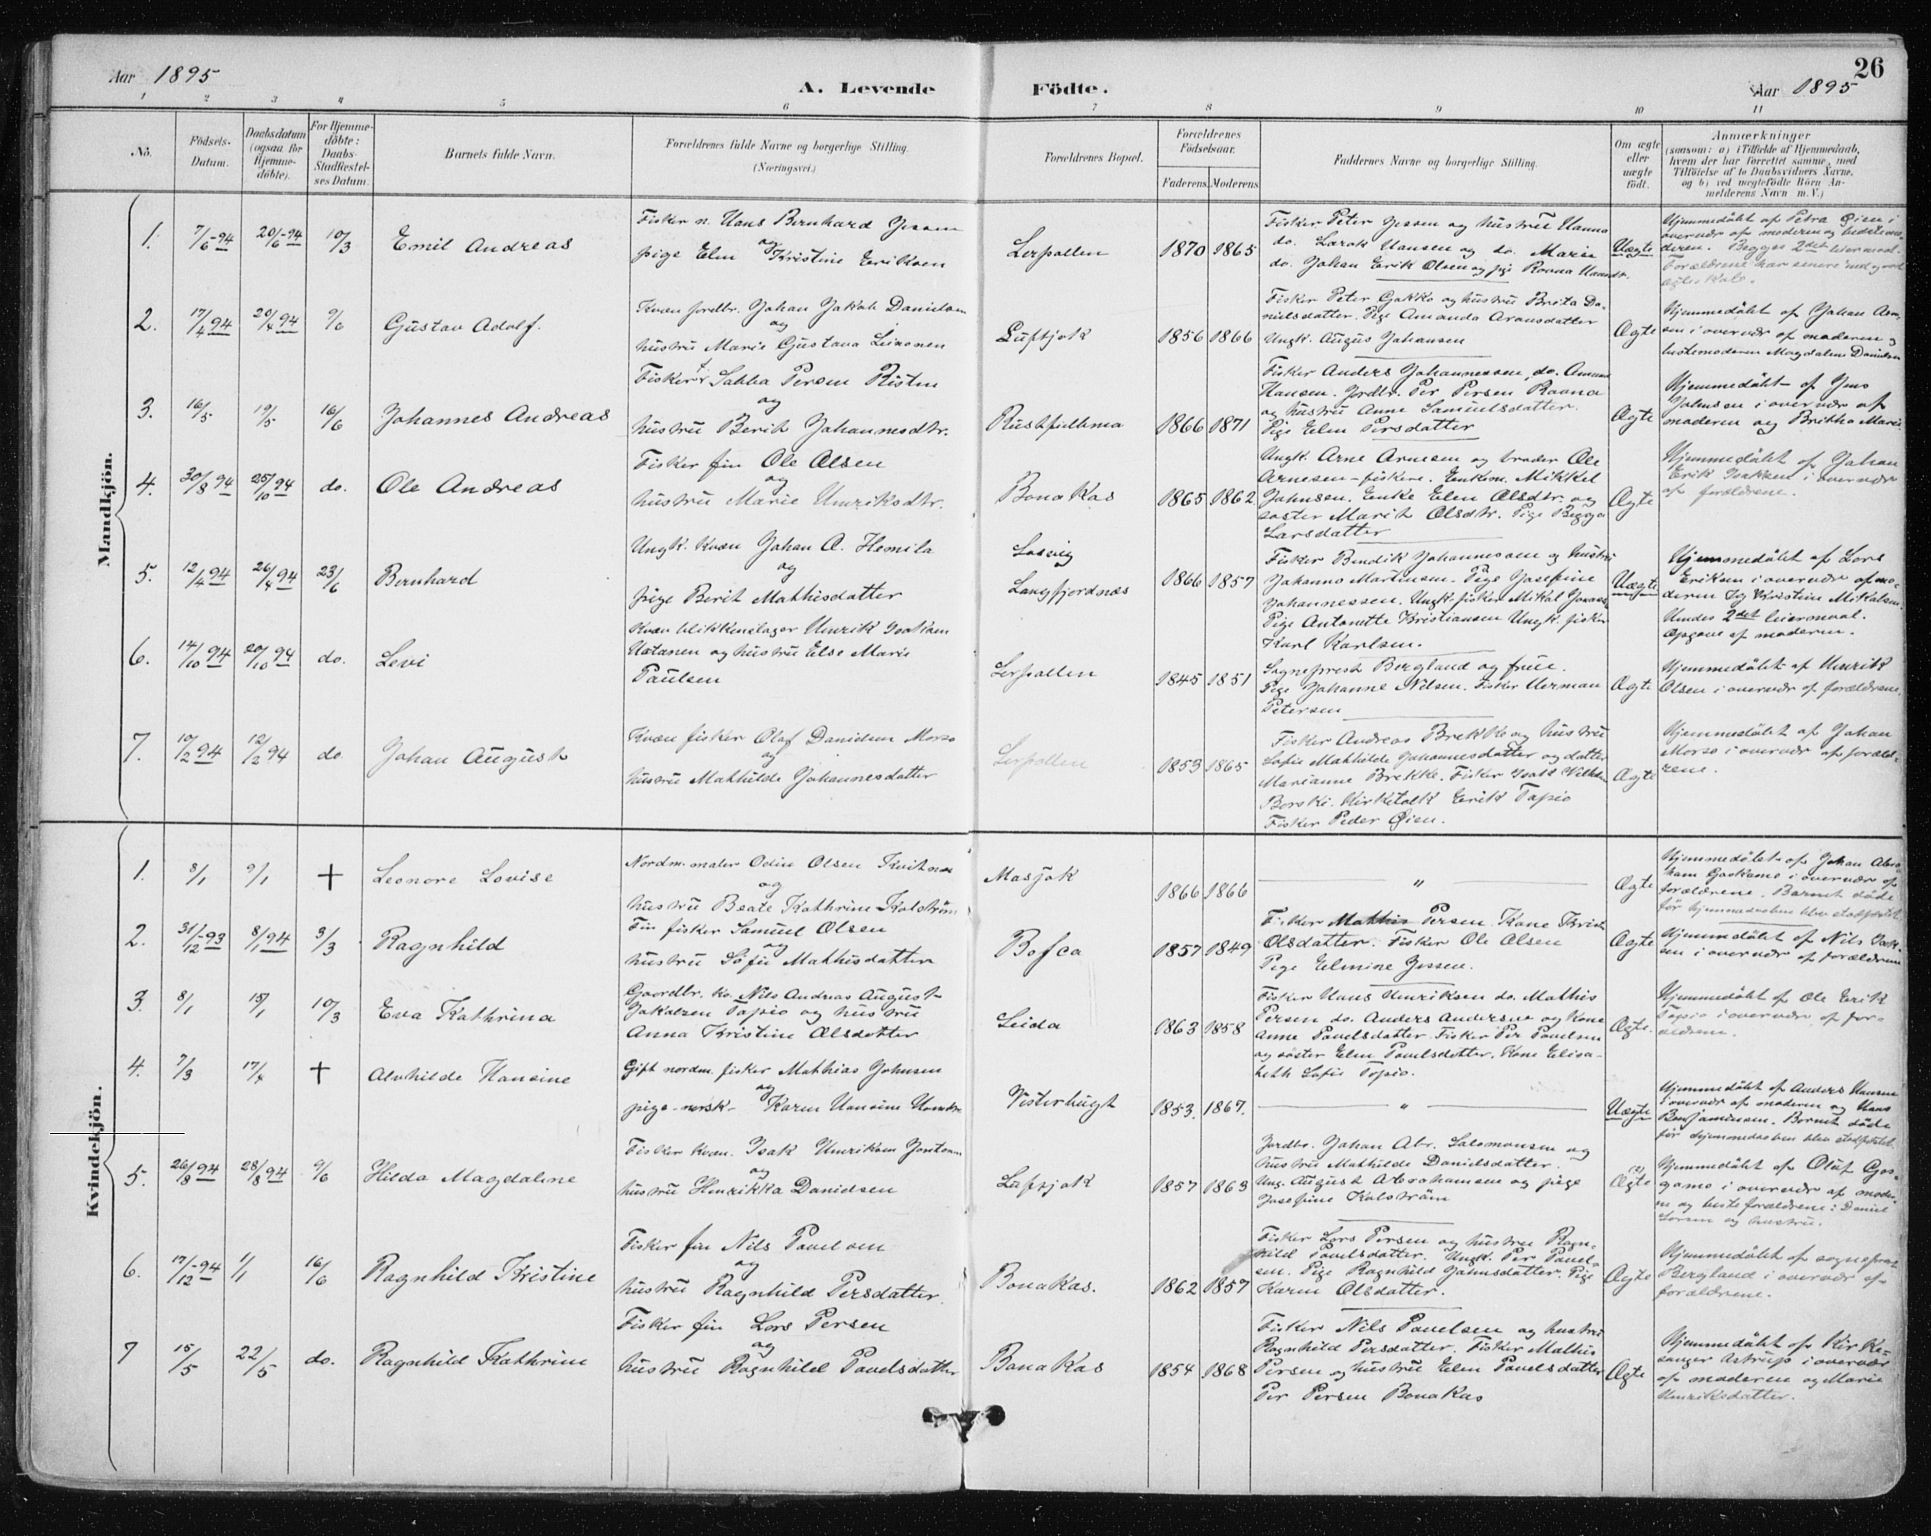 Aar 1895
A. Levende
Födte.
Aar 1895
26
1 2 3 4 5 6 7 8 9 10 11
No.
Födsels-
Datum.
Daabsdatum
(ogsaa for
Hjemme-
döbte).
For Hjemme-
döbte:
Daabs-
Stadfæstel-
ses Datum.
Barnets fulde Navn.
Forældrenes fulde Navne og borgerlige Stilling.
(Næringsvei.)
Forældrenes Bopæl.
Forældrenes
Födselsaar.
Faderens. Moderens.
Faddernes Navne og borgerlige Stilling.
Om ægte
eller
uægte
födt.
Anmærkninger
(saasom: a) i Tilfælde af Hjemmedaab,
hvem der har forrettet samme, med
Tilföielse af to Daabsvidners Navne,
og b) ved uegtefödte Börn An-
melderens Navn m. V.)
Mandkjön.
1. 7/6-94 20/6-94 10/3 Emil Andreas
Fisker n. Hans Bernhard Jessen
og
pige Elen Kristine Eriksen
Lerpollen 1870 1865
Fisker Peter Jessen og hustru Hanna
do. Larak Hansen og do. Marie
do. Johan Erik Olsen og pige
Uægte
Hjemmedöbt af Petra Øien i
overvær af moderen og bedstemo-
deren. Begges 2det leiermaal.
2. 17/4 94 20/4 94 9/6 Gustav Adolf.
Kvæn jordbr. Johan Jakob Danielsen
og
hustru Marie Gustava
Luftjok 1856 1866
Fisker Peter Gakko og hustru Brita Da-
nielsdatter. Pige Amanda Aronsdatter
Ungk. August Johansen
Ægte
Hjemmedöbt af Johan
sen i overvær af moderen og
bestemoderen Magdalen Danielsen
3. 16/5 19/5 16/6 Johannes Andreas
Fisker Sabba Persen Risten
og
hustru Berit Johannesdtr.
Rustfielbma 1866 1871
Fisker Anders Johannessen, do.
Hansen. Jordbr. Per Persen Raana
og hustru Anne Samuelsdatter.
Pige Elen Persdatter
Ægte
Hjemmedöbt af Jens
Johnsen i overvær af
moderen og Brikha Marie
4. 30/8 94 25/10 94 do. Ole Andreas
Fisker fin Ole Olsen
og
hustru Marie Henriksdtr.
Bonakas 1865 1862
Ungk. Arne Arnesen og broder Ole
Arnesen - fiskere. Enkem. Mikkel
Johnsen. Enke Elen Olsdtr. og
söster Marit Olsdtr. Pige
Larsdatter
Ægte
Hjemmedöbt af Johan
Erik Isakken i overvær
af forældrene.
5. 12/4 94 26/4 94 23/6 Bernhard
Ungk. Kvæn Johan A. Hemila
og
pige Berit Mathisdatter
Langfjordnæs 1866 1857
Fisker Bendik Johannesen og hustru
Johanna Martinsen. Pige Josefine
Johannessen. Ungk. fisker Mikal
Pige Antonette Kristiansen Ungk. fisker
Karl Karlsen.
Uægte
Hjemmedöbt af Lars
Eriksen i overvær af mo-
deren og Kirstein Mikalsen.
2det leiermaal.
Opgave af moderen.
6. 14/10 94 20/10 94 do. Levi
Kvæn blikkenslager Henrik Isaksen
og hustru Else Marie
Paulsen
Lerpollen 1845 1851
Sogneprest Bergland og frue.
Pige Johanne Nilsen. Fisker Herman
Petersen
Ægte
Hjemmedöbt af Henrik
Olsen i overvær af forældrene.
7. 10/2 94 12/2 94 do Johan August
Kvæn fisker Olaf Danielsen Morso
og
hustru Mathilde Johannesdatter
Lerpollen 1853 1865
Fisker Andreas Brekke og hustru
Sofie Mathilde Johannesdatter og datter
Marianne Brekke. Fisker Isak
Borski. Kirketolk Erik Tapio
Fisker Peder Øien.
Ægte
Hjemmedöbt af Johan
Morso i overvær af foræld-
rene.
Kvindekjön.
1. 8/1 9/1 + Leonore Lovise
Nordm. maler Odin Olsen
og
hustru Beate Kathrine Kalström
Masjok 1866 1866
"
Ægte
Hjemmedöbt af Johan Abra-
ham i overvær af
forældrene. Barnet döde
för hjemmedaaben blev stadfæstet.
2. 31/12-93 8/1 94 3/3 Ragnhild
Fin fisker Samuel Olsen
og
hustru Sofie Mathisdatter
Bofca 1857 1849
Fisker Mathis Persen. Kone
Olsdatter. Fisker Ole Olsen
Pige Elmine Jessen.
Ægte
Hjemmedöbt af Nils Isak-
sen i overvær af forældrene
3. 8/1 15/1 10/3 Eva Kathrina
Gaardbr. kv. Nils Andreas August
Jakobsen Tapio og hustru
Anna Kristine Olsdatter
Leida 1863 1858
Fisker Hans Henriksen do. Mathis
Persen do. Anders Andersen og Kone
Anne Pavelsdatter. Fisker Per Pavelsen
og söster Elen Pavelsdatter. Kone Elisa-
beth Sofie Tapio.
Ægte.
Hjemmedöbt af Ole Erik
Tapio i overvær af for-
ældrene.
4. 7/3 17/4 + Alvhilde Hansine
Gift nordm. fisker Mathias Johnsen
og
pige - norsk - Karen Hansine
Vesterbugt 1853. 1867.
"
Uægte
Hjemmedöbt af Anders Hansen
i overvær af moderen og Hans
Benjaminsen. Barnet döde
för hjemmedaaben blev stadfæstet.
5. 26/8 94 28/8 94 9/6 Hilda Magdalene
Fisker kvæn. Isak Henriksen
og
hustru Henrikka Danielsen
Luftjok 1857 1863
Jordbr. Johan Abr. Salomonsen og
hustru Mathilde Danielsdatter.
Ung. August Abrahamsen og pige
Josefine Kalström
Ægte
Hjemmedöbt af Oluf
i overvær af moder-
en og besteforældrene: Daniel
Larsen og hustru.
6. 17/12-94 1/1 16/6 Ragnhild Kristine
Fisker fin Nils Pavelsen
og
hustru Ragnhild Persdatter
Bonakas. 1862 1857
Fisker Lars Persen og hustru Ragn-
hild Pavelsdatter. Ungk. Per Pavel-
sen. Pige Ragnhild Johnsdatter. Pige
Karen Olsdatter.
Ægte
Hjemmedöbt af sogneprest
Bergland i overvær af
forældrene.
7 15/5 22/5 do. Ragnhild Kathrine
Fisker fin Lars Persen
og
hustru Ragnhild Pavelsdatter
Bonakas 1854 1868
Fisker Nils Pavelsen og hustru
Ragnhild Persdatter. Fisker Mathis
Persen og hustru Elen Pavelsdatter
Per Persen Bonakas
Ægte
Hjemmedöbt af Kirke-
sanger Astrup i overvær
af moderen og Marie
Henriksdatter.